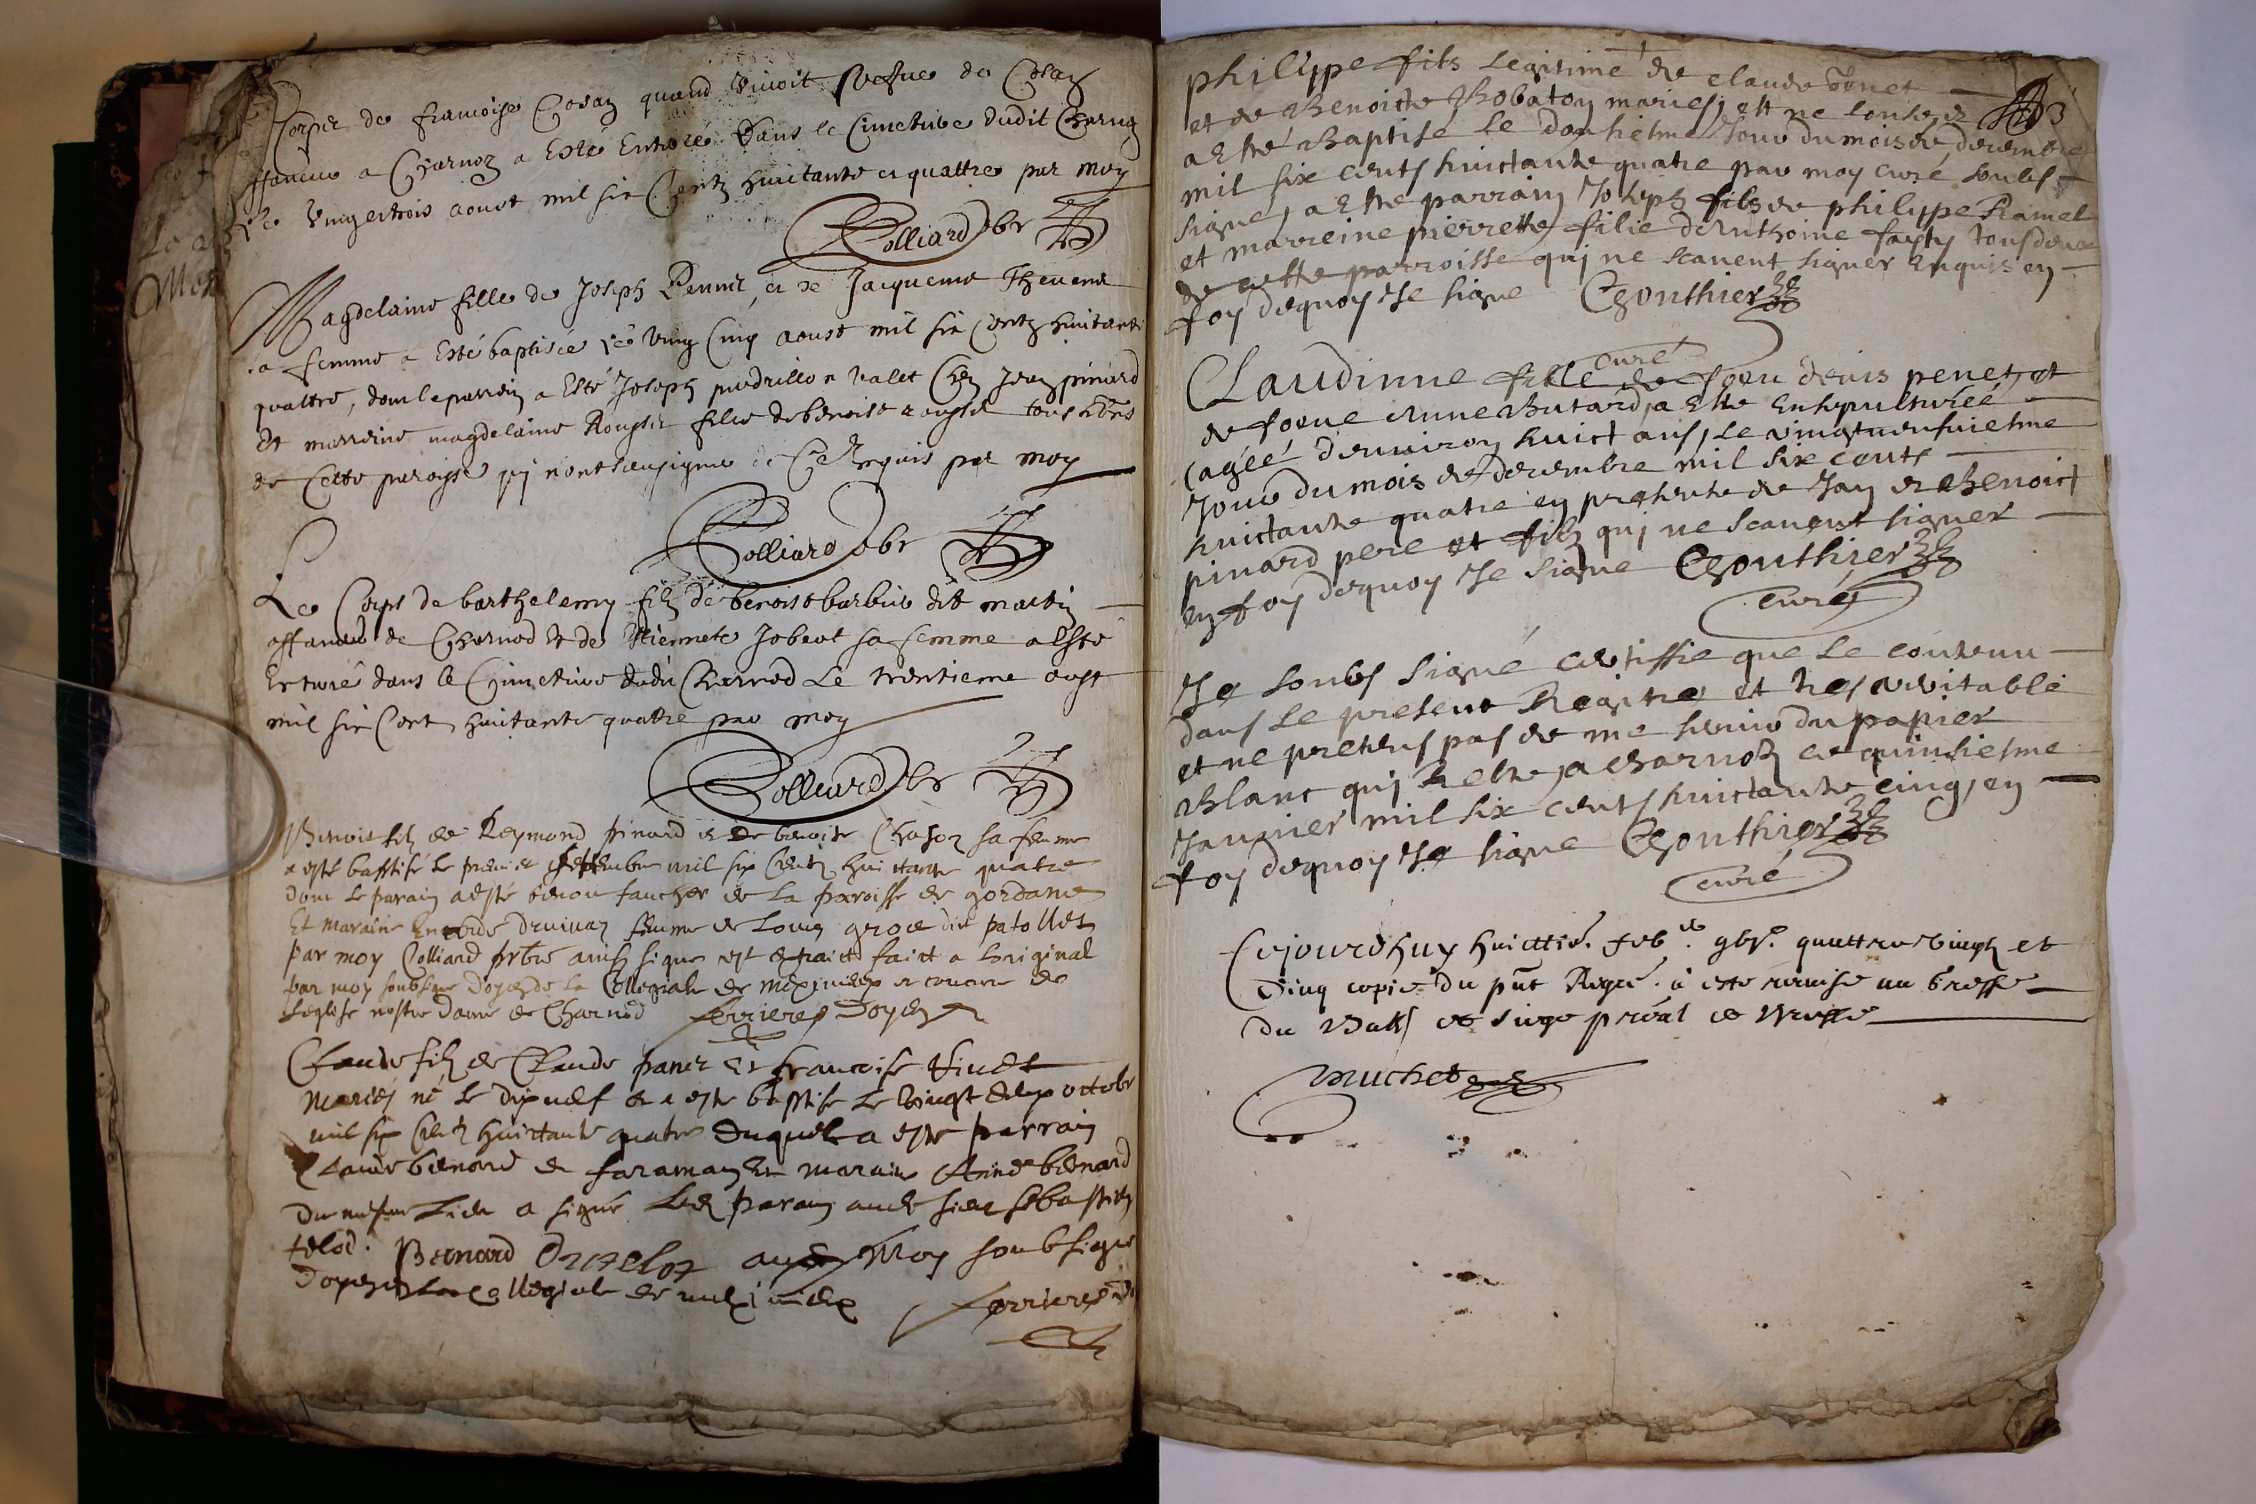 Corps de francoise Cosaz quand vivoit veefve de Cosaz
affaneur a Charnoz a Esté Enterré dans le Cimetiere dudit Charnoz
Le vingt trois aoust mil six Centz huictante et quattre par moy
Colliard pbr
Magdelaine fille de Joseph Pennet, et de Jacqueme Thevenet
sa femme a Esté baptisée Le vingt Cinq aoust mil six Centz huictante
quattre, dont le parrein a Esté Joseph valet Chez Jean pinard
Et marreine magdelaine Rougier fille de benoist rougier tous
de Cette paroisse qui n'ont sceu signer de Ce Enquis par moy
Colliard pbr
Le Corps de barthelemy filz de benoist barbier dit martin
affaneur de Charnod Et de Estiennete Jobert sa femme a Esté
Enterré dans le Cimetiere dudit Charnod Le trentieme aoust
mil six Cent huictante quattre par moy
Colliard pbr
Benoist filz de Reymond pinard et de benoiste Chason sa femme
a esté baptisé le premier septembre mil six Centz huictante quatre
dont le parain a esté benoit faucher de la paroisse de gordane
Et maraine femme de Louis groz dit patollet
par moy Colliard prbre ainsi signe est extraict faict a l'original
par moy soubsigne doyen de la Collegiale de meximieux et de
Leglise nostre dame de Charnod ferrieres Doyen
Claude filz de Claude panet Et francoise vinet
Mariés né le dixneuf et a esté baptisé le vingt deux octobre
mil six Centz huictante quatre duquel a esté parrain
Claude benard de faraman Et maraine Anne benard
du mesme Lieu a signé Led parain avec sieur sebastien
telod. Bernard avec Moy soubsigné
doyen de la Collegiale de meximieux ferrieres
philippe fils legitime de claude
et de Benoicte Robaton maries, est ne le
a este Baptisé le donsiesme Jour du mois de decembre
mil six cents huictante quatre par moy curé soubs
signé, a este parrain Joseph fils de philippe Ramel
et marreine pierrette fille d'Anthoine faysy tous deux
de cette parroisse qui ne scavent signer enquis en
foy dequoy Je signe Gonthier
curé
Claudinne fille de foeu denis penet, et
de foeue Anne Butard, a este Ensepulturéé
(agéé d'environ huict ans, le vingtneufviesme
Jour du mois de decembre mil six cents
huictante quatre en presence de Jan et Benoict
pinard pere et filz qui ne scavent signer
en foy dequoy Je signe Gonthier
curé
Je soubs signé certiffie que le contenu
dans le present Registre est tres veritable
et ne pretens pas de me servir du papier
Blanc qui Reste, a charnoz ce quinsiesme
Janvier mil six cents huictante cinq, en
foy dequoy Je signe Gonthier
curé
Cejourdhuy huictie. feb. gbr. quattre vingtz et
Cinq copie du pnt Regre. a este remise au Greffe
du Ball. et siege preal de Bresse
muchet